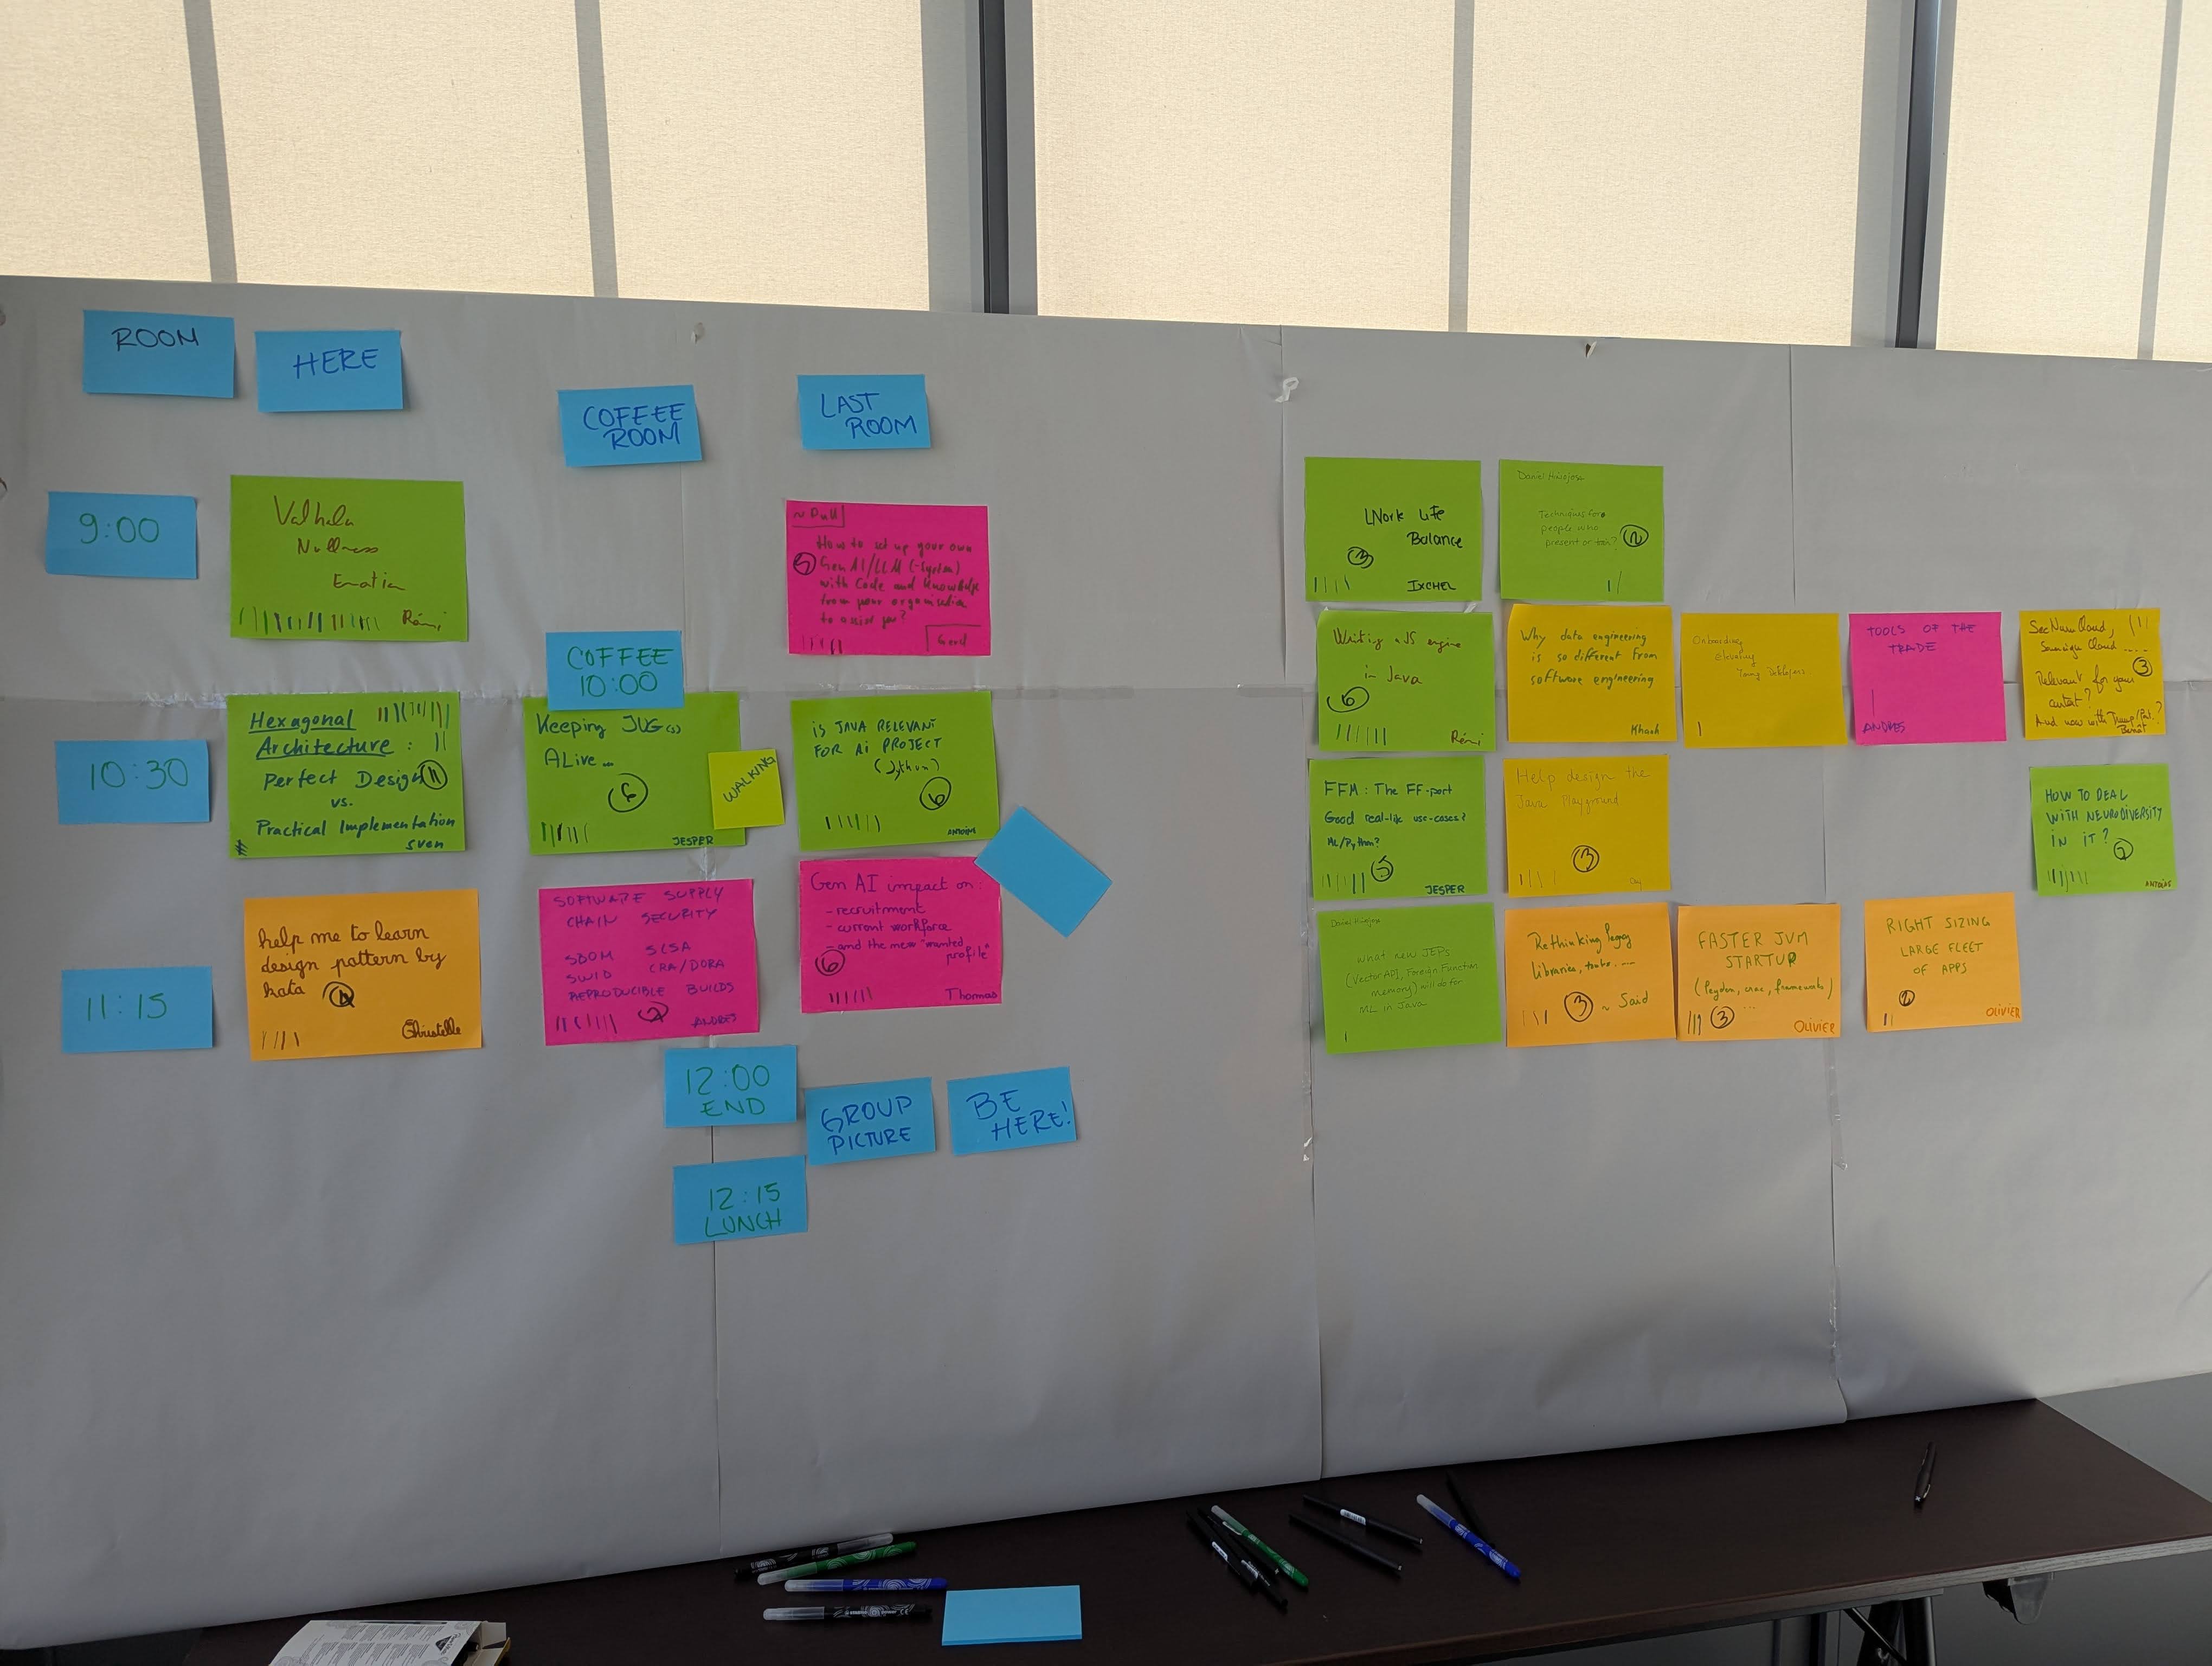 ROOM
HERE
COFFEE
ROOM
LAST
ROOM
9:00
Valhala
Nullness
Rémi
How to set up your own
5
GenAI/LLM (-System)
with Code and Knowledge
from your organisation
to assist you?
Gerd
COFFEE
10:00
10:30
Hexagonal
Architecture:
Perfect Design
11
vs.
Practical Implementation
Sven
Keeping JUG(s)
ALive...
6
JESPER
WALKING
iS JAVA RELEVANT
FOR Ai PROJECT
(Jython)
6
ANTOINE
11:15
help me to learn
design pattern by
kata
4
Christelle
SOFTWARE SUPPLY
CHAIN SECURITY
SBOM SLSA
SWID CRA/DORA
REPRODUCIBLE BUILDS
7
ANDRES
Gen AI impact on:
- recruitment
- current workforce
- and the new "wanted
profile"
6
Thomas
12:00
END
GROUP
PICTURE
BE
HERE!
12:15
LUNCH
Work Life
Balance
3
IXCHEL
Daniel Hinojosa
Techniques for
people who
present or
2
Writing a JS engine
in Java
6
Rémi
Why data engineering
is so different from
software engineering
Khanh
Onboarding
Young Developers
TOOLS OF THE
TRADE
ANDRES
SecNumCloud,
Sovereign Cloud ....
3
Relevant for your
And now with Trump
Benoît
FFM: The FF-part
Good real-life use-cases?
ML/Python?
5
JESPER
Help design the
Java Playground
3
HOW TO DEAL
WITH NEURODIVERSITY
iN iT?
ANTOINE
Daniel Hinojosa
what new JEPs
(Vector API, Foreign Function
memory) will do for
ML in Java
Rethinking legacy
libraries, tools.....
3
~ Said
FASTER JVM
STARTUP
(leyden, crac, frameworks)
3
...
OLIVIER
RIGHT SIZING
LARGE FLEET
OF APPS
2
OLIVIER